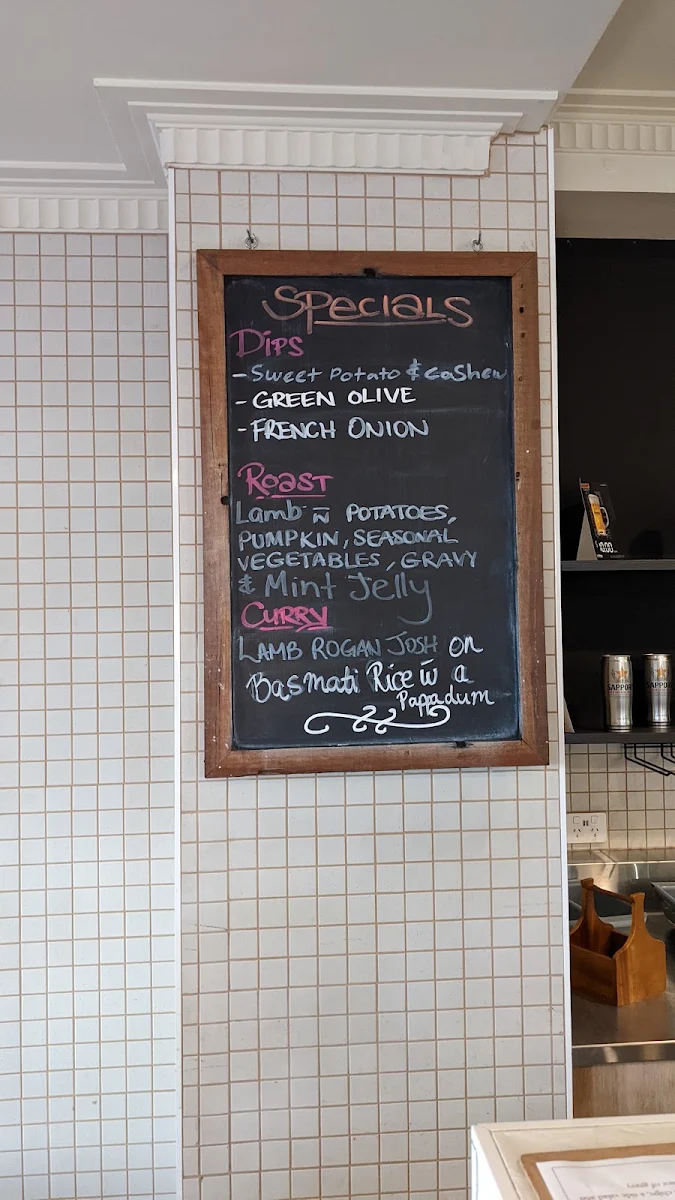 SPecIaLS
Dips
- Sweet Potato & CaShew
- GREEN OLIVE
- FRENCH ONION
Roast
Lamb w̄ POTATOES,
PUMPKIN, SEASONAL
VEGETABLES, GRAVY
& Mint Jelly
CURRY
LAMB ROGAN JOSH on
Basmati Rice w̄ a
Pappadum
SAPPOR
SAPPOR